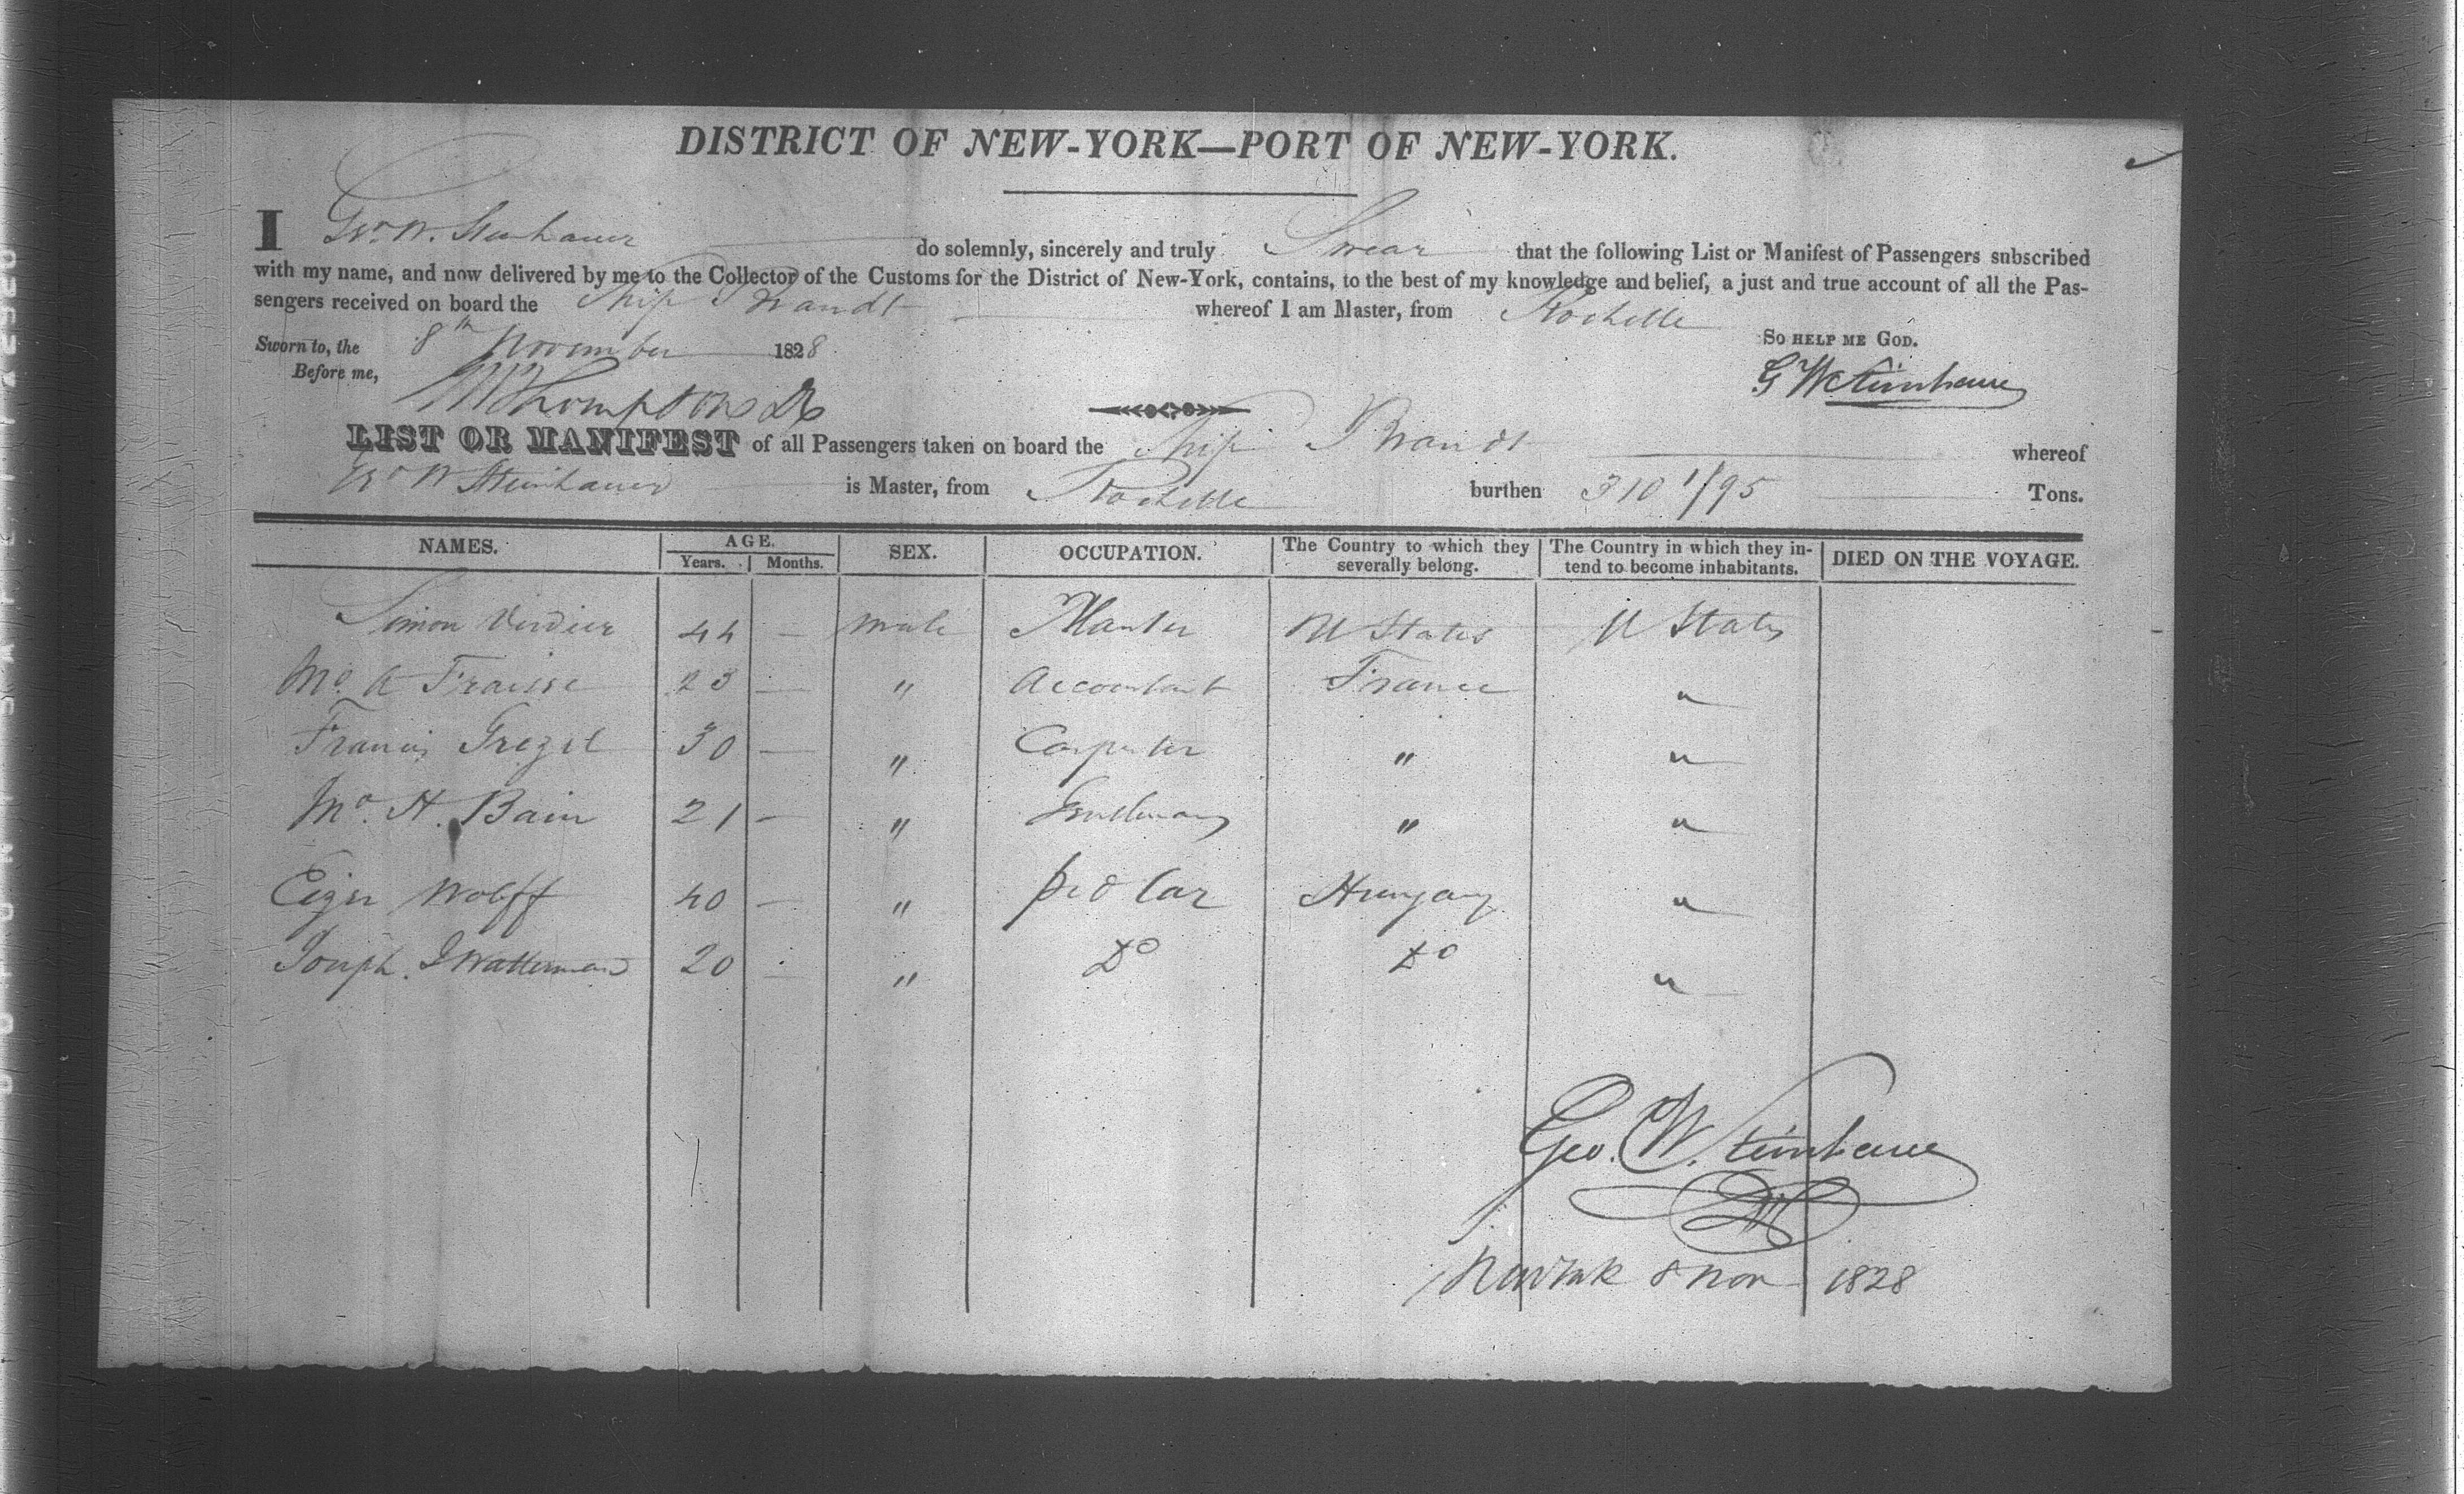 DISTRICT OF NEW-YORK—PORT OF NEW-YORK.
I Geo. W. Steinhauer do solemnly, sincerely and truly Swear that the following List or Manifest of Passengers subscribed
with my name, and now delivered by me to the Collector of the Customs for the District of New-York, contains, to the best of my knowledge and belief, a just and true account of all the Pas-
sengers received on board the Ship Brandt whereof I am Master, from Rochelle
Sworn to, the 8th November 1828 SO HELP ME GOD.
Before me, Thompson G W Steinhauer
LIST OR MANIFEST of all Passengers taken on board the Ship Brandt whereof
Geo W Steinhauer is Master, from Rochelle burthen 310 1/95 Tons.
NAMES. AGE. SEX. OCCUPATION. The Country to which they severally belong. The Country in which they in-tend to become inhabitants. DIED ON THE VOYAGE.
Years. Months.
Simon Verdier 44 — Male Planter U States U States
Mo. A Fraisse 23 — " Accountant France "
Francis Grezel 30 — " Carpenter " "
Mo. H. Bain 21 — " Gentleman " "
Eiger Wolff 40 — " pedlar Hungary "
Joseph I Watterman 20 — " Do Do "
Geo. W. Steinhauer
New York 8 Nov 1828